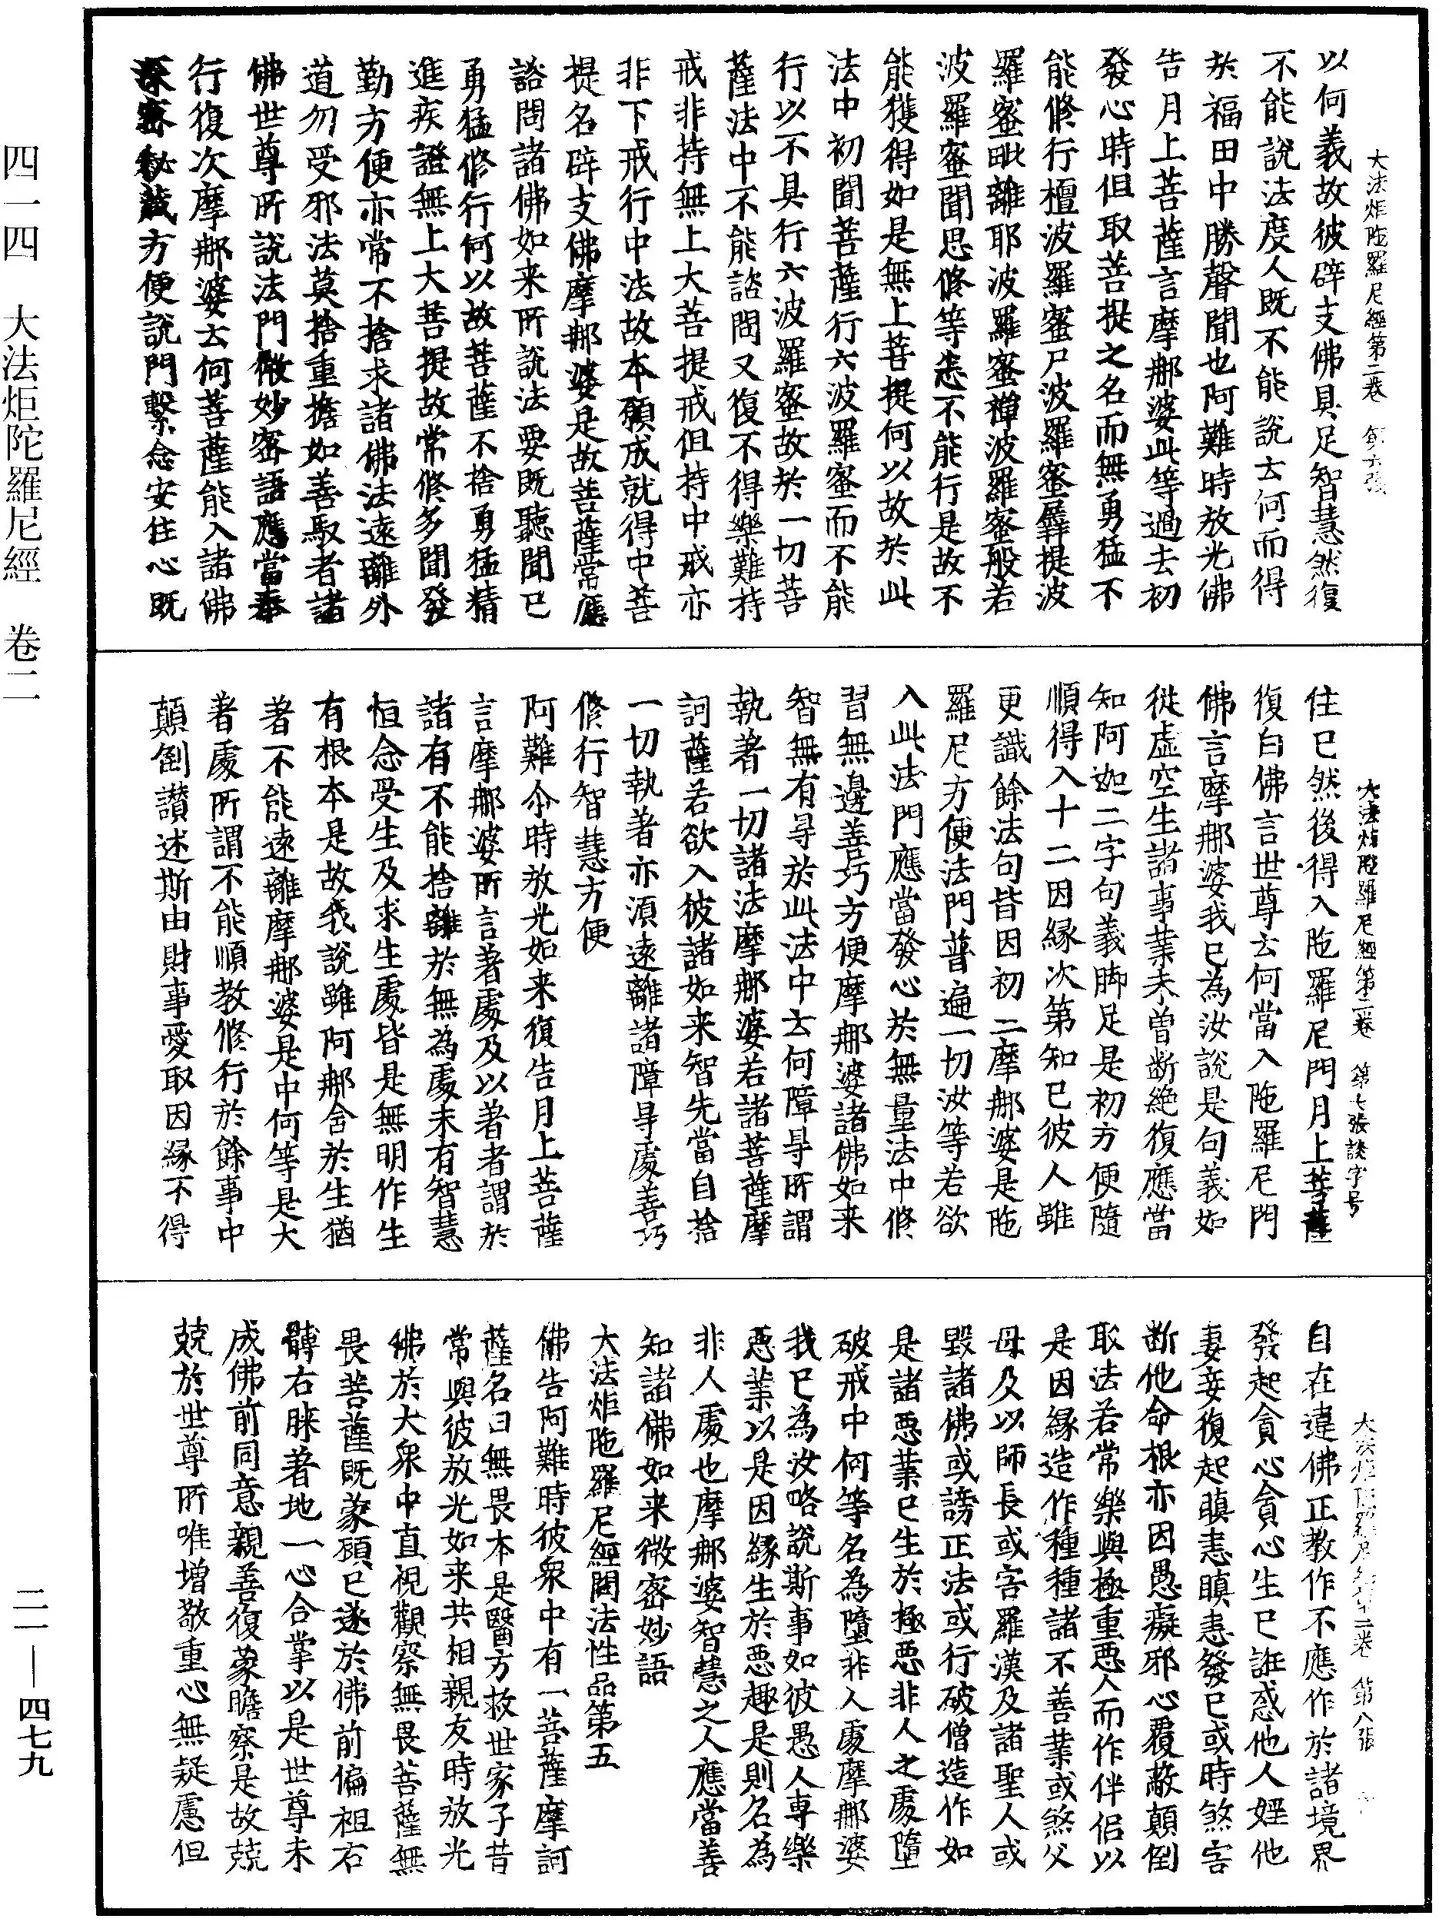 大法炬陁羅尼經第二卷　第六張
以何義故彼辟支佛具足智慧然復
不能說法度人既不能說云何而得
於福田中勝聲聞也阿難時放光佛
告月上菩薩言摩那婆此等過去初
發心時但取菩提之名而無勇猛不
能修行檀波羅蜜尸波羅蜜羼提波
羅蜜毗離耶波羅蜜禪波羅蜜般若
波羅蜜聞思修等悉不能行是故不
能獲得如是無上菩提何以故於此
法中初聞菩薩行六波羅蜜而不能
行以不具行六波羅蜜故於一切菩
薩法中不能諮問又復不得樂難持
戒非持無上大菩提戒但持中戒亦
非下戒行中法故本願成就得中菩
提名辟支佛摩那婆是故菩薩常應
諮問諸佛如来所說法要既聽聞已
勇猛修行何以故菩薩不捨勇猛精
進疾證無上大菩提故常修多聞發
勤方便亦常不捨求諸佛法遠離外
道勿受邪法莫捨重擔如善馭者諸
佛世尊所說法門微妙密語應當奉
行復次摩那婆云何菩薩能入諸佛
深密秘藏方便說門繫念安住心既
大法炬陁羅尼經第二卷　第七張　談字号
住已然後得入陁羅尼門月上菩薩
復白佛言世尊云何當入陁羅尼門
佛言摩那婆我已為汝說是句義如
從虛空生諸事業未曾断絶復應當
知阿迦二字句義脚足是初方便隨
順得入十二因緣次第知已彼人雖
更識餘法句皆因初二摩那婆是陁
羅尼方便法門普遍一切汝等若欲
入此法門應當發心於無量法中修
習無邊善巧方便摩那婆諸佛如来
智無有㝵於此法中云何障㝵所謂
執著一切諸法摩那婆若諸菩薩摩
訶薩若欲入彼諸如来智先當自捨
一切執著亦須遠離諸障㝵處善巧
修行智慧方便
阿難尒時放光如来復告月上菩薩
言摩那婆所言著處及以著者謂於
諸有不能捨離於無為處未有智慧
恒念受生及求生處皆是無明作生
有根本是故我說雖阿那舍於生猶
著不能遠離摩那婆是中何等是大
著處所謂不能順教修行於餘事中
顛倒讃述斯由財事愛取因緣不得
大法炬陁羅尼經第二卷　第八張
自在違佛正教作不應作於諸境界
發起貪心貪心生已誑惑他人婬他
妻妾復起瞋恚瞋恚發已或時煞害
断他命根亦因愚癡邪心覆蔽顛倒
取法若常樂與極重惡人而作伴侶以
是因緣造作種種諸不善業或煞父
母及以師長或害羅漢及諸聖人或
毀諸佛或謗正法或行破僧造作如
是諸惡業已生於極惡非人之處墮
破戒中何等名為墮非人處摩那婆
我已為汝略說斯事如彼愚人專樂
惡業以是因緣生於惡趣是則名為
非人處也摩那婆智慧之人應當善
知諸佛如来微密妙語
大法炬陁羅尼經問法性品第五
佛告阿難時彼衆中有一菩薩摩訶
薩名曰無畏本是醫方救世家子昔
常與彼放光如来共相親友時放光
佛於大衆中直視觀察無畏菩薩無
畏菩薩既蒙頋已遂於佛前偏袒右
髆右膝著地一心合掌以是世尊未
成佛前同意親善復蒙瞻察是故兢
兢於世尊所唯增敬重心無疑慮但
四一四　大法炬陀羅尼經　卷二
二一—四七九